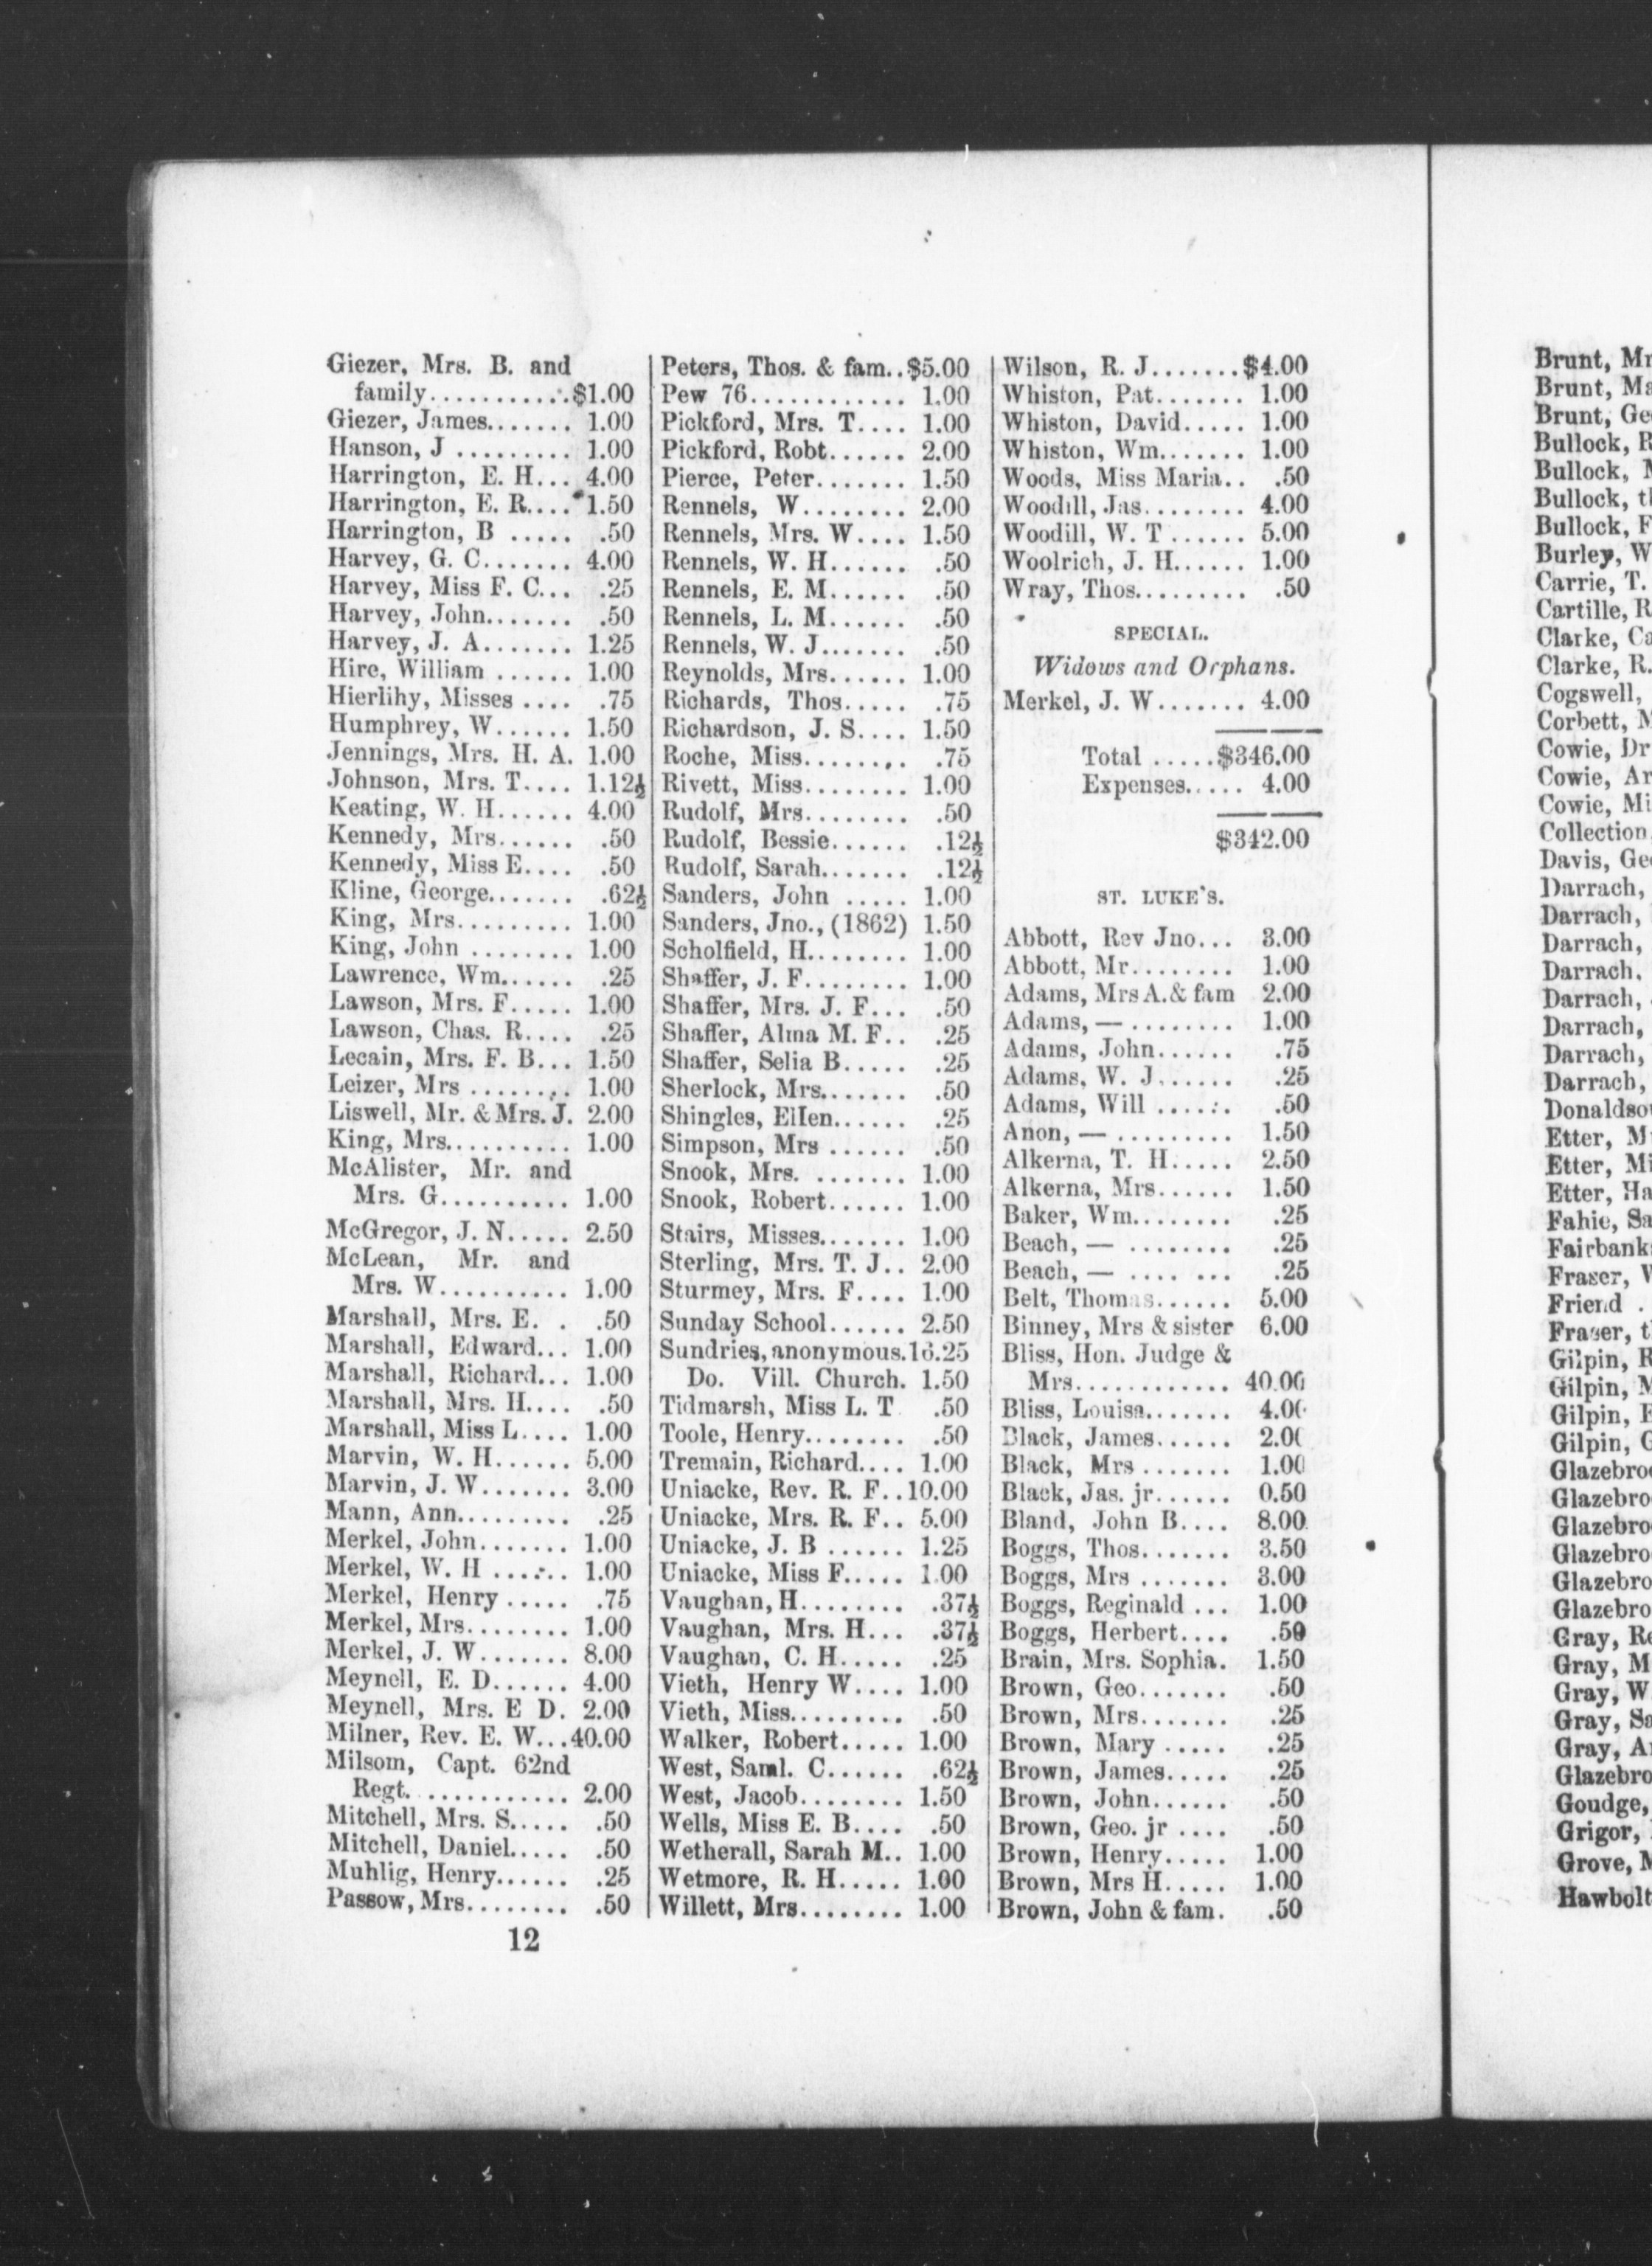 Giezer, Mrs. B. and
family..........$1.00
Giezer, James....... 1.00
Hanson, J ......... 1.00
Harrington, E. H... 4.00
Harrington, E. R.... 1.50
Harrington, B ..... .50
Harvey, G. C....... 4.00
Harvey, Miss F. C... .25
Harvey, John....... .50
Harvey, J. A....... 1.25
Hire, William ...... 1.00
Hierlihy, Misses .... .75
Humphrey, W...... 1.50
Jennings, Mrs. H. A. 1.00
Johnson, Mrs. T.... 1.12½
Keating, W. H...... 4.00
Kennedy, Mrs...... .50
Kennedy, Miss E.... .50
Kline, George....... .62½
King, Mrs......... 1.00
King, John ........ 1.00
Lawrence, Wm...... .25
Lawson, Mrs. F..... 1.00
Lawson, Chas. R.... .25
Lecain, Mrs. F. B... 1.50
Leizer, Mrs ........ 1.00
Liswell, Mr. & Mrs. J. 2.00
King, Mrs.......... 1.00
McAlister, Mr. and
Mrs. G.......... 1.00
McGregor, J. N..... 2.50
McLean, Mr. and
Mrs. W.......... 1.00
Marshall, Mrs. E. . .50
Marshall, Edward... 1.00
Marshall, Richard... 1.00
Marshall, Mrs. H.... .50
Marshall, Miss L.... 1.00
Marvin, W. H...... 5.00
Marvin, J. W....... 3.00
Mann, Ann......... .25
Merkel, John....... 1.00
Merkel, W. H ...... 1.00
Merkel, Henry ..... .75
Merkel, Mrs........ 1.00
Merkel, J. W....... 8.00
Meynell, E. D...... 4.00
Meynell, Mrs. E D. 2.00
Milner, Rev. E. W...40.00
Milsom, Capt. 62nd
Regt. ............ 2.00
Mitchell, Mrs. S..... .50
Mitchell, Daniel..... .50
Muhlig, Henry...... .25
Passow, Mrs........ .50
12
Peters, Thos. & fam..$5.00
Pew 76............ 1.00
Pickford, Mrs. T.... 1.00
Pickford, Robt...... 2.00
Pierce, Peter....... 1.50
Rennels, W........ 2.00
Rennels, Mrs. W.... 1.50
Rennels, W. H...... .50
Rennels, E. M...... .50
Rennels, L. M...... .50
Rennels, W. J....... .50
Reynolds, Mrs...... 1.00
Richards, Thos..... .75
Richardson, J. S.... 1.50
Roche, Miss........ .75
Rivett, Miss........ 1.00
Rudolf, Mrs........ .50
Rudolf, Bessie...... .12½
Rudolf, Sarah....... .12½
Sanders, John ..... 1.00
Sanders, Jno., (1862) 1.50
Scholfield, H........ 1.00
Shaffer, J. F........ 1.00
Shaffer, Mrs. J. F... .50
Shaffer, Alma M. F.. .25
Shaffer, Selia B..... .25
Sherlock, Mrs....... .50
Shingles, Ellen...... .25
Simpson, Mrs ...... .50
Snook, Mrs. ....... 1.00
Snook, Robert...... 1.00
Stairs, Misses....... 1.00
Sterling, Mrs. T. J.. 2.00
Sturmey, Mrs. F.... 1.00
Sunday School...... 2.50
Sundries, anonymous.16.25
Do. Vill. Church. 1.50
Tidmarsh, Miss L. T .50
Toole, Henry........ .50
Tremain, Richard.... 1.00
Uniacke, Rev. R. F..10.00
Uniacke, Mrs. R. F.. 5.00
Uniacke, J. B ...... 1.25
Uniacke, Miss F..... 1.00
Vaughan, H........ .37½
Vaughan, Mrs. H... .37½
Vaughan, C. H..... .25
Vieth, Henry W.... 1.00
Vieth, Miss......... .50
Walker, Robert..... 1.00
West, Saml. C...... .62½
West, Jacob........ 1.50
Wells, Miss E. B.... .50
Wetherall, Sarah M.. 1.00
Wetmore, R. H..... 1.00
Willett, Mrs........ 1.00
Wilson, R. J.......$4.00
Whiston, Pat....... 1.00
Whiston, David..... 1.00
Whiston, Wm....... 1.00
Woods, Miss Maria.. .50
Woodill, Jas........ 4.00
Woodill, W. T ...... 5.00
Woolrich, J. H...... 1.00
Wray, Thos......... .50
SPECIAL.
Widows and Orphans.
Merkel, J. W....... 4.00
Total .....$346.00
Expenses..... 4.00
$342.00
ST. LUKE'S.
Abbott, Rev Jno... 3.00
Abbott, Mr........ 1.00
Adams, Mrs A. & fam 2.00
Adams, — ........ 1.00
Adams, John...... .75
Adams, W. J...... .25
Adams, Will ..... .50
Anon, — ......... 1.50
Alkerna, T. H..... 2.50
Alkerna, Mrs...... 1.50
Baker, Wm........ .25
Beach, — ........ .25
Beach, — .... ... .25
Belt, Thomas...... 5.00
Binney, Mrs & sister 6.00
Bliss, Hon. Judge &
Mrs............ 40.00
Bliss, Louisa....... 4.00
Black, James...... 2.00
Black, Mrs ....... 1.00
Black, Jas. jr...... 0.50
Bland, John B.... 8.00
Boggs, Thos....... 3.50
Boggs, Mrs ....... 3.00
Boggs, Reginald ... 1.00
Boggs, Herbert.... .50
Brain, Mrs. Sophia. 1.50
Brown, Geo....... .50
Brown, Mrs....... .25
Brown, Mary ..... .25
Brown, James..... .25
Brown, John...... .50
Brown, Geo. jr .... .50
Brown, Henry..... 1.00
Brown, Mrs H..... 1.00
Brown, John & fam. .50
Brunt,
Brunt,
Brunt,
Bullock,
Bullock,
Bullock,
Bullock,
Burley, W
Carrie, T.
Cartille, R
Clarke,
Clarke, R.
Cogswell,
Corbett,
Cowie, Dr
Cowie,
Cowie,
Collection
Davis,
Darrach,
Darrach,
Darrach,
Darrach.
Darrach,
Darrach,
Darrach,
Darrach,
Etter,
Etter,
Etter,
Fahie,
Fraser,
Friend .
Fraser,
Gilpin,
Gilpin,
Gilpin,
Gilpin,
Gray,
Gray,
Gray, W
Gray,
Gray,
Goudge,
Grigor,
Grove,
Hawbolt